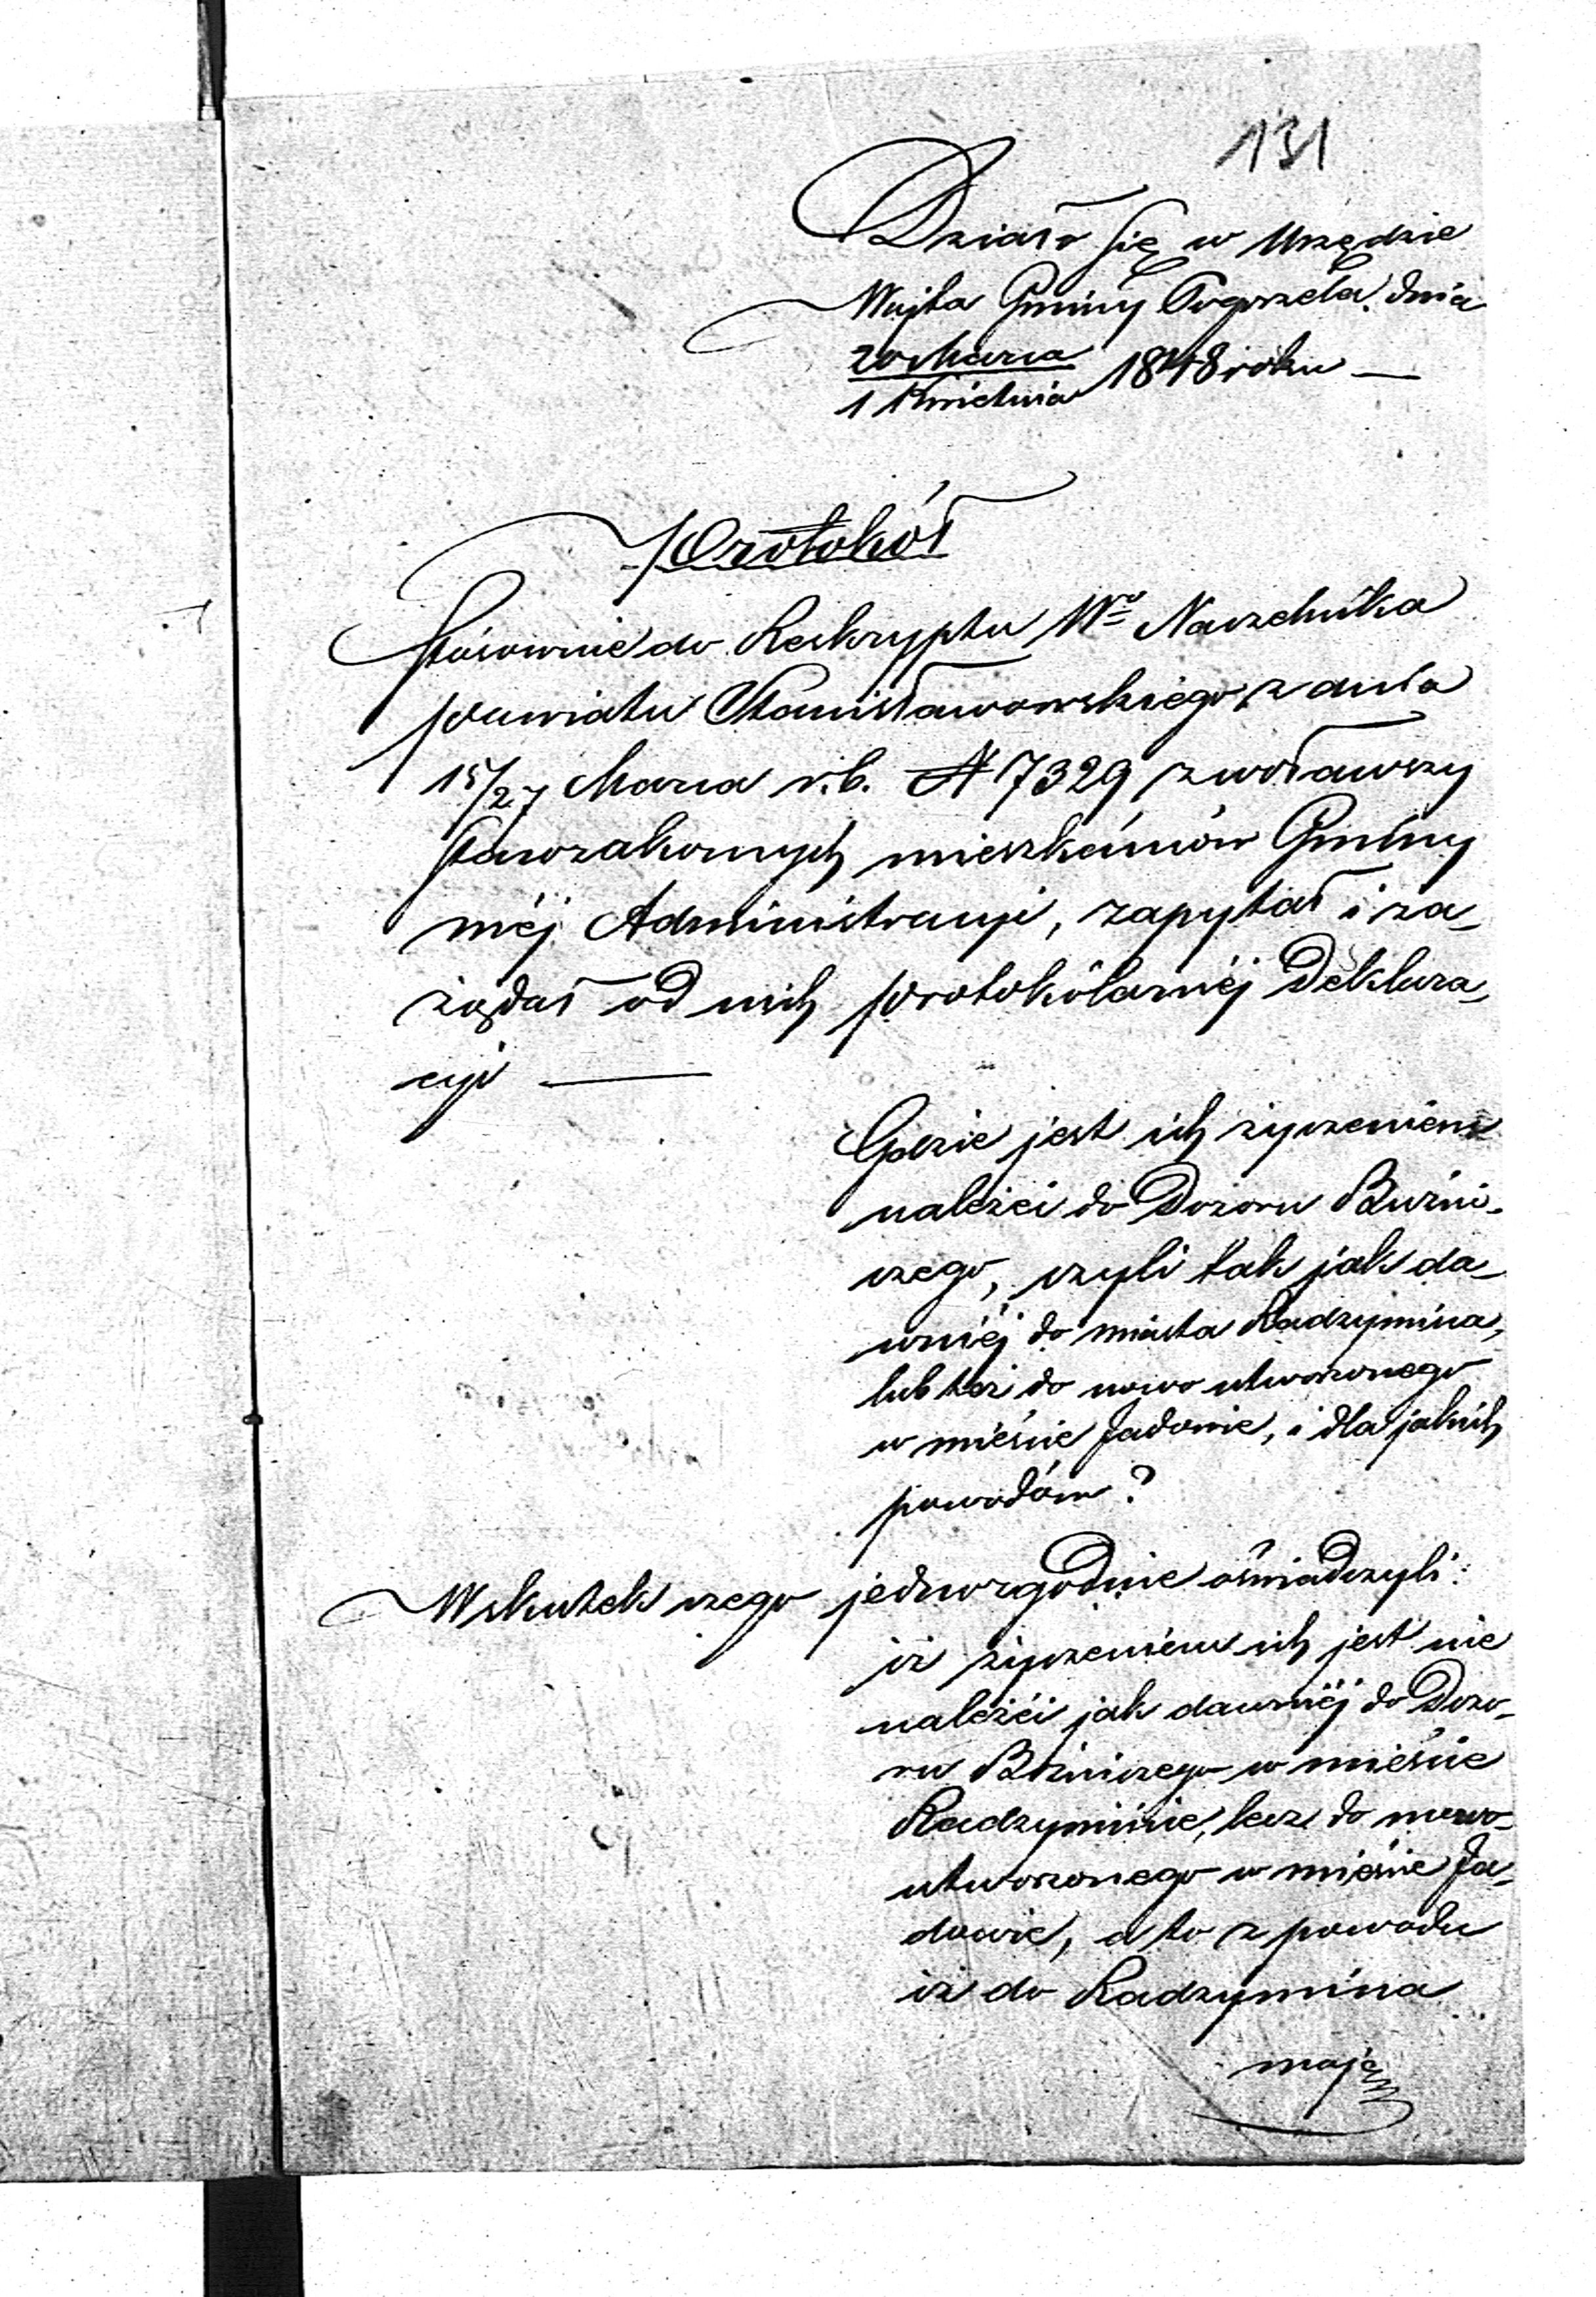 131
Działo się w Urzędzie
Wójta Gminy Pogorzela dnia
20 Marca
1 Kwietnia 1848 roku —
Protokół
Stósownie do Reskryptu Wo Naczelnika
powiatu Stanisławowskiego z dnia
15/27 Marca r.b. N 7329 zwoławszy
starozakonnych mieszkańców Gminy
méj Administracyi, zapytał i za-
żądał od nich protokólarnéj Deklara-
cyi —
Gdzie jest ich życzeniem
należéć do Dozoru Bużni-
czego, czyli tak jak da-
wniéj do miasta Radzymina,
lub też do nowo utworzonego
w mieście Jadowie, i dla jakich
powodów?
W skutek czego jednozgodnie oświadczyli:
iż życzeniem ich jest nie
należéć jak dawniéj do Dozo-
ru Bóżniczego w mieście
Radzyminie, lecz do nowo-
utworzonego w mieście Ja-
dowie, a to z powodu
iż do Radzymina
mają